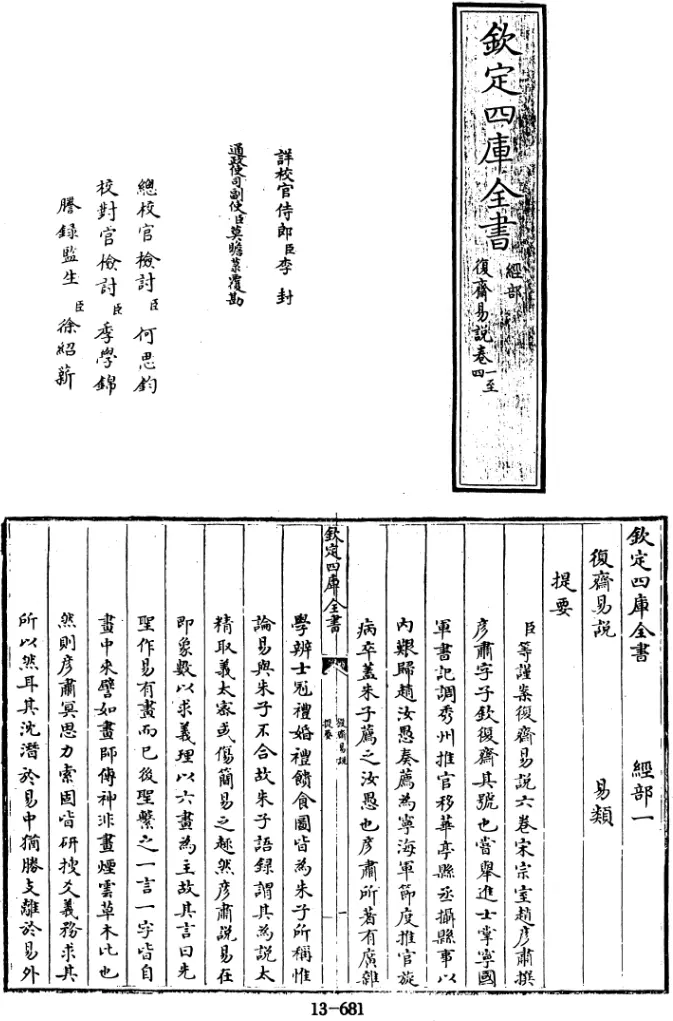 欽定四庫全書
經部
復齋易說卷一至四
詳校官侍郎臣李封
通政使司副使臣莫瞻菉覆勘
總校官檢討臣何思鈞
校對官檢討臣季學錦
謄錄監生臣徐紹薪
欽定四庫全書 經部一
復齋易説 易類
提要
臣等謹案復齋易説六卷宋宗室趙彥肅撰
彥肅字子欽復齋其號也嘗舉進士掌寧國
軍書記調秀州推官移華亭縣丞攝縣事以
内艱歸趙汝愚奏薦為寧海軍節度推官旋
病卒蓋朱子薦之汝愚也彥肅所著有廣雜
欽定四庫全書
復齋易説
提要
一
學辨士冠禮婚禮饋食圖皆為朱子所稱惟
論易與朱子不合故朱子語録謂其為説太
精取義太密或傷簡易之趣然彥肅説易在
即象數以求義理以六畫為主故其言曰先
聖作易有畫而已後聖繫之一言一字皆自
畫中來譬如畫師傳神非畫煙雲草木比也
然則彥肅冥思力索固皆研搜爻義務求其
所以然耳其沈潛於易中猶勝支離於易外
13-681